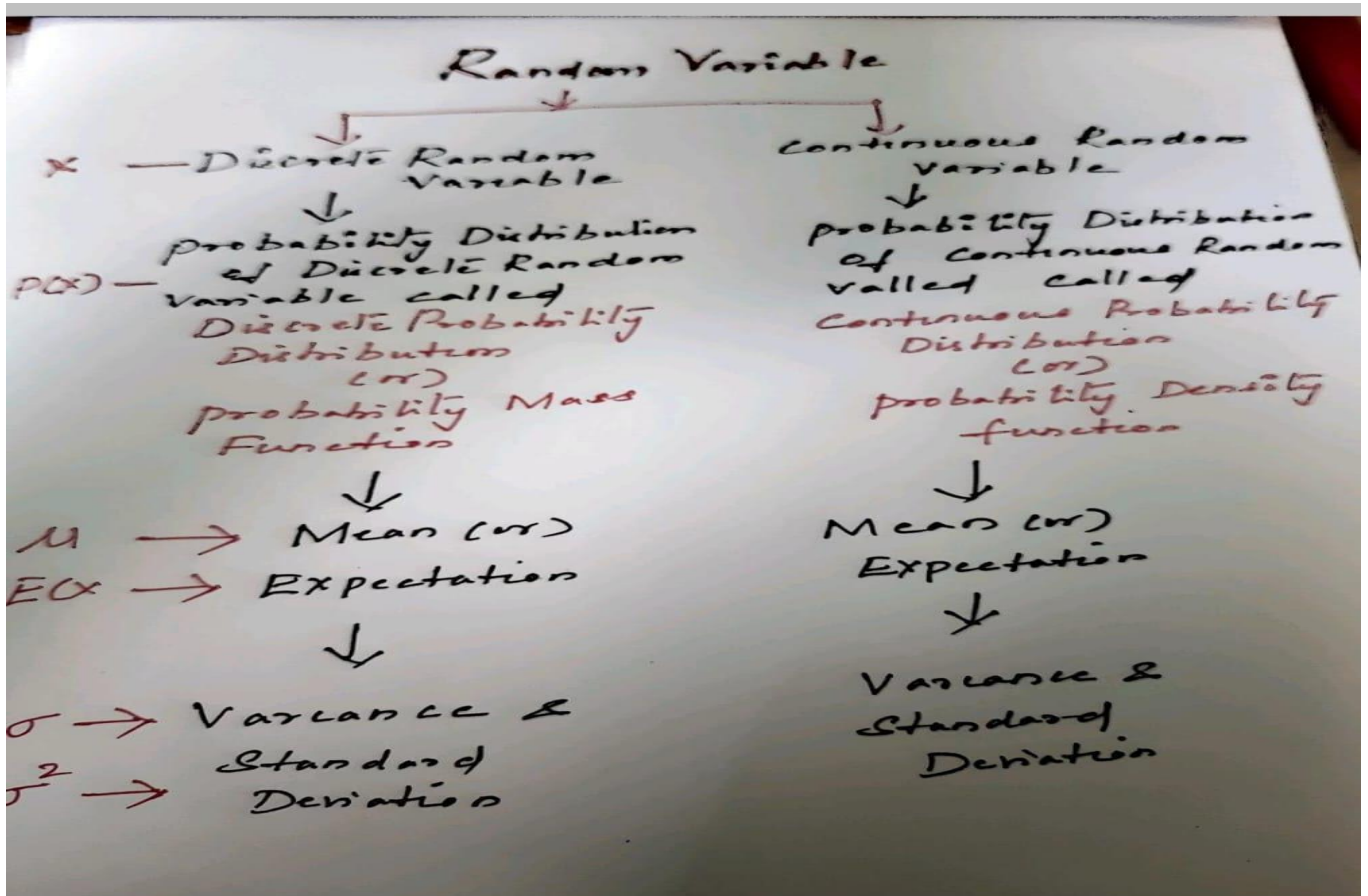 Random Variable
x — Discrete Random
Variable
probability Distribution
P(x) — of Discrete Random
Variable called
Discrete Probability
Distribution
(or)
probability Mass
Function
μ → Mean (or)
E(x → Expectation
σ → Variance &
Standard
σ² → Deviation
Continuous Random
variable
probability Distribution
of Continuous Random
valled called
Continuous Probability
Distribution
(or)
probability Density
function
Mean (or)
Expectation
Variance &
Standard
Deviation